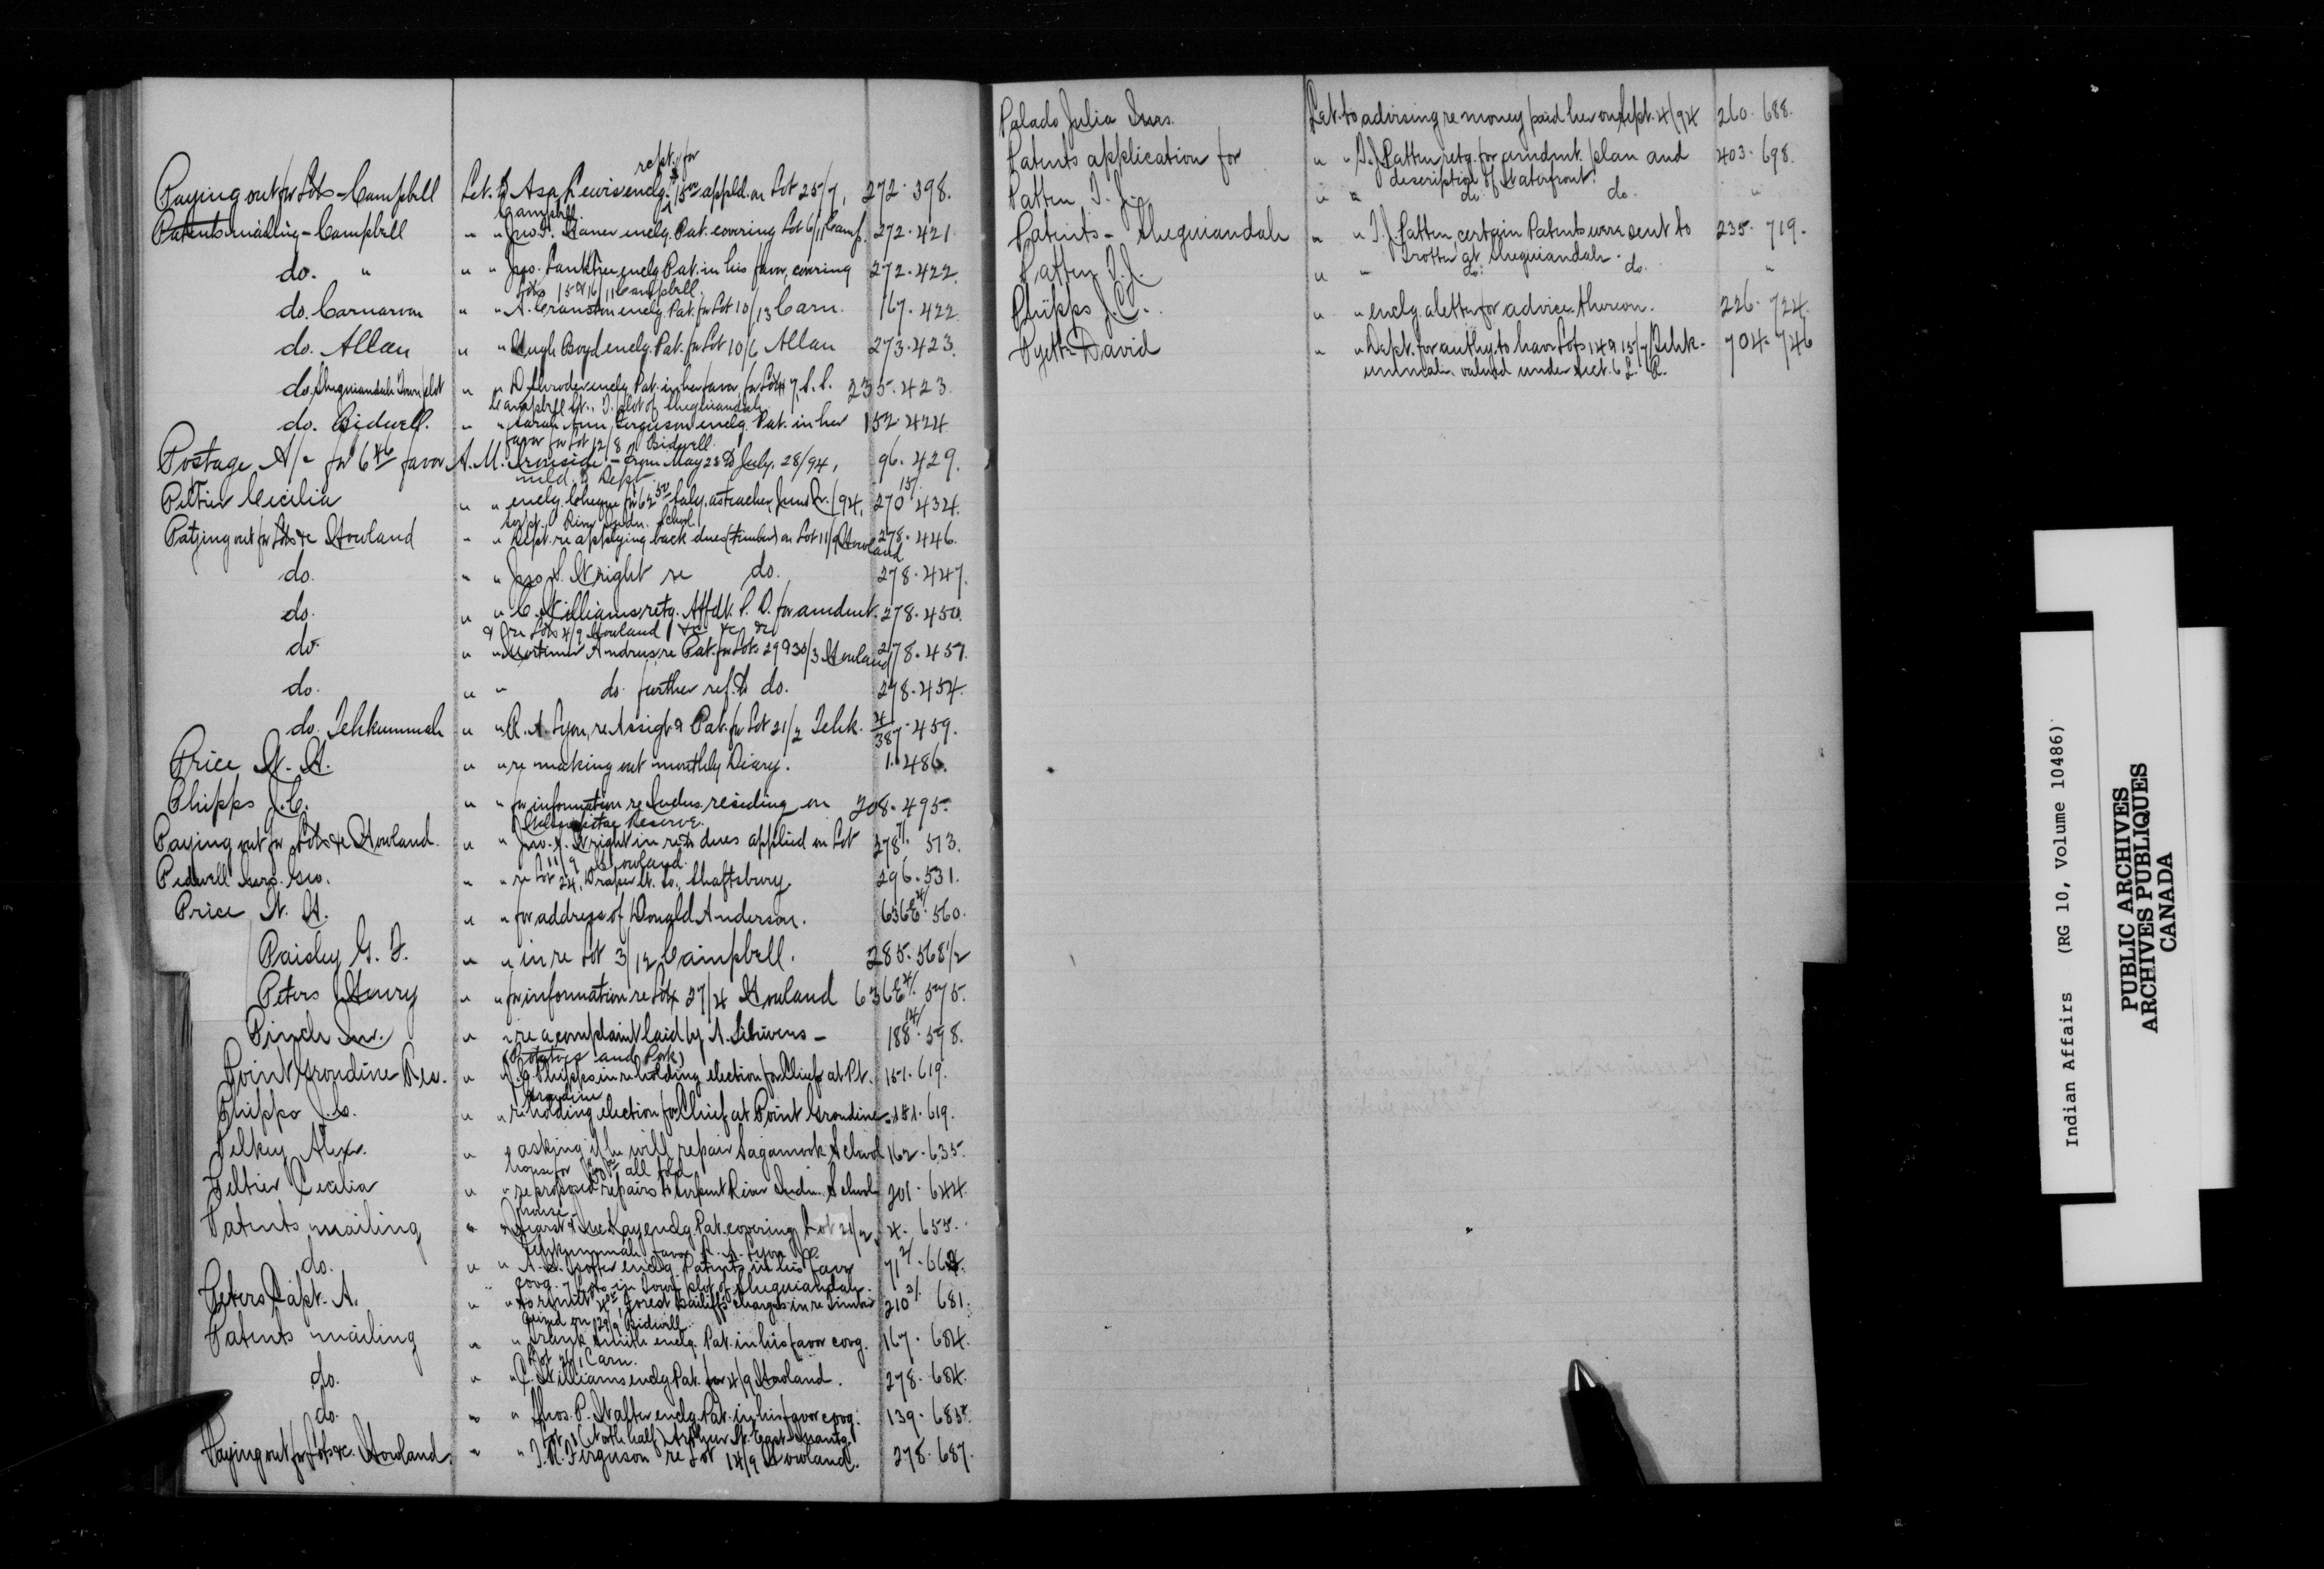 rept. for
Paying out for Lots - Campbell Let. to Asa Lewis enclg. $15.00 appld. on Lot 25/7, 272 · 398.
Campbell.
Patents mailing - Campbell " " Jno. T. enclg. Pat. covering Lot 6/11 Camp. 272 · 421.
do. " " " Jno. enclg. Pat. in his favor, covering 272 · 422.
Lots 15 & 16/11 Campbell.
do. Carnarvon " " A. Cranston enclg. Pat. for Lot 10/13 Carn. 167 · 422.
do. Allan " " Hugh Boyd enclg. Pat. for Lot 10/6 Allan 273 · 423.
do. Sheguiandah Town plot " " enclg. Pat. in her favor, for Lot 7, S. S. 235 · 423.
Campbell St., T. plot of Sheguiandah
do. Bidwell. " " Sarah Ann Ferguson enclg. Pat. in her 152 · 424.
favor for Lot 12/8 Bidwell.
Postage A/c for 6.46 favor A. M. Ironside - from May 28 to July, 28/94, 96 · 429.
to Dept.
Peltier Cecilia " " enclg. Cheque for 62.50 Saly. as teacher June Qr. /94, 270 15/ 434.
Serpt. River Indn. School.
Paying out for Lots &c Howland " " Dept. re applying back dues (timber) on Lot 11/9 Howland 278 · 446.
do. " " Jno. S. Wright re do. 278 · 447.
do. " " C. Williams retg. Affdt. P. D. for amdmt. 278 · 450.
& re Lots 4/9 Howland &c &c &c
do. " " Mortimer Andrus re Pat. for Lots 29 & 30/3 Howland 278 · 451.
do. " " do. further ref. to do. 278 · 454.
do. Tehkummah " " R. A. Lyon, re Assigt & Pat. for Lot 21/2 Tehk. 4/387 · 459.
Price W. H. " " re making out monthly Diary. 1. 486.
Phipps J. C. " " for information re Indns. residing on 208 · 495.
Reserve.
Paying out for Lots &c Howland. " " Jno. S. Wright in re to dues applied on Lot 278 7/ 513.
11/9 Howland.
Pidwell Mrs. Geo. " " re Lot 24, Draper St. So., Shaftsbury. 296 · 531.
Price W. H. " " for address of Donald Anderson. 636E 4/ 560.
Paisley G. F. " " in re Lot 3/12 Campbell. 285 · 568 1/2
Peters Henry " " for information re Lot 27/4 Howland 636E 4/ 575.
Pinch " " re a complaint laid by A. - 188 14/ 598.
(Potatoes and Pork)
Point Grondine Res. " " J. C. Phipps in re holding election for Chief at Pt. 181 · 619.
Grondine
Phipps J. C. " " re holding election for Chief at Point Grondine. 181 · 619.
Pelkey Alexr. " " asking if he will repair Sagamook School 162 · 635.
house for all told
Peltier Cecilia " " re proposed repairs to Serpent River Indn. School 201 · 644.
house.
Patents mailing " " & McKay enclg. Pat. covering Lot 21/2, 4 · 655.
Tehkummah favor R. A. Lyon
do. " " A. enclg. Patents in his favor 71 2/ 664.
covg. 7 Lots in Town plot of Sheguiandah
Peters Capt. A. " " to remit Forest Bailiff's charges in re Timber 210 3/ 681.
seized on 12/9 Bidwell.
Patents mailing " " Frank Smith enclg. Pat. in his favor covg. 167 · 684.
Lot Carn.
do. " " C. Williams enclg Pat. for 4/9 Howland. 278 · 684.
do. " " Thos. P. enclg. Pat. in his favor covg. 139 · 685.
Lot (North half) Arthur St. East Manitg.
Paying out for Lots &c. Howland. " " T. H. Ferguson re Lot 14/9 Howland. 278 · 687.
Palado Julia Mrs. Let. to advising re money paid her on Sept. 4/94 260 · 688.
Patents application for " " T. J. Patten retg. for amdmt. plan and 403 · 698.
description of Waterfront.
Patten T. J. " " do. do. "
Patents - Sheguiandah " " T. J. Patten, certain Patents were sent to 235 · 719.
Trotter at Sheguiandah.
Patten T. J. " " do. do. "
Phipps J. C. " " enclg. a letter for advice thereon. 226 · 724.
Pyette David " " Dept. for authy. to have Lots 14 & 15/7 Tehk- 704 · 746
ummah. valued under Sect. 6 L. R.
Indian Affairs (RG 10, Volume 10486)
PUBLIC ARCHIVES
ARCHIVES PUBLIQUES
CANADA